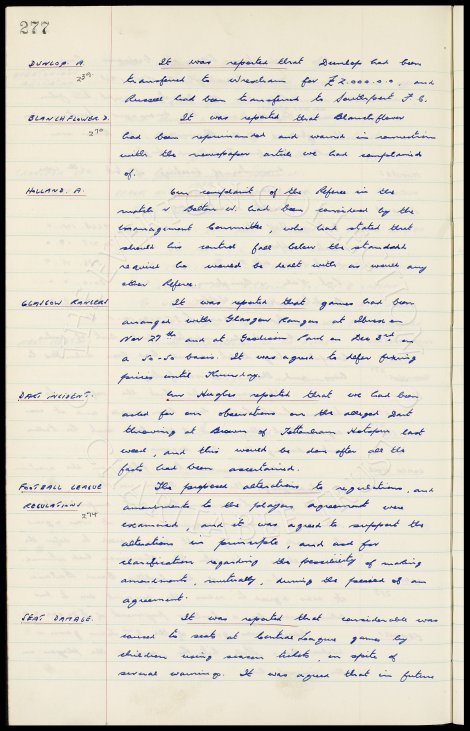 277
DUNLOP. A. It was reported that Dunlop had been
259. transferred to Wrexham for £2,000.0.0, and
Russell had been transferred to Southport F.C.
BLANCHFLOWER D. It was reported that Blanchflower
270 had been reprimanded and warned in connection
with the newspaper article we had complained
of.
HOLLAND. A. Our complaint of the Referee in the
match v Bolton W. had been considered by the
Management Committee, who had stated that
should his control fall below the standard
required he would be dealt with as would any
other Referee.
GLASGOW RANGERS It was reported that games had been
arranged with Glasgow Rangers at Ibrox on
Nov 27th and at Goodison Park on Dec 3rd on
a 50-50 basis. It was agreed to defer fixing
prices until Thursday.
DART INCIDENT. Mr Hughes reported that we had been
asked for our observations on the alleged dart
throwing at Brown of Tottenham Hotspur last
week, and this would be done after all the
facts had been ascertained.
FOOTBALL LEAGUE The proposed alterations to regulations, and
REGULATIONS amendments to the players agreement were
274 examined, and it was agreed to support the
alterations in principle, and ask for
clarification regarding the possibility of making
amendments, mutually, during the period of an
agreement.
SEAT DAMAGE. It was reported that considerable was
caused to seats at Central League games by
children using season tickets, in spite of
several warnings. It was agreed that in future